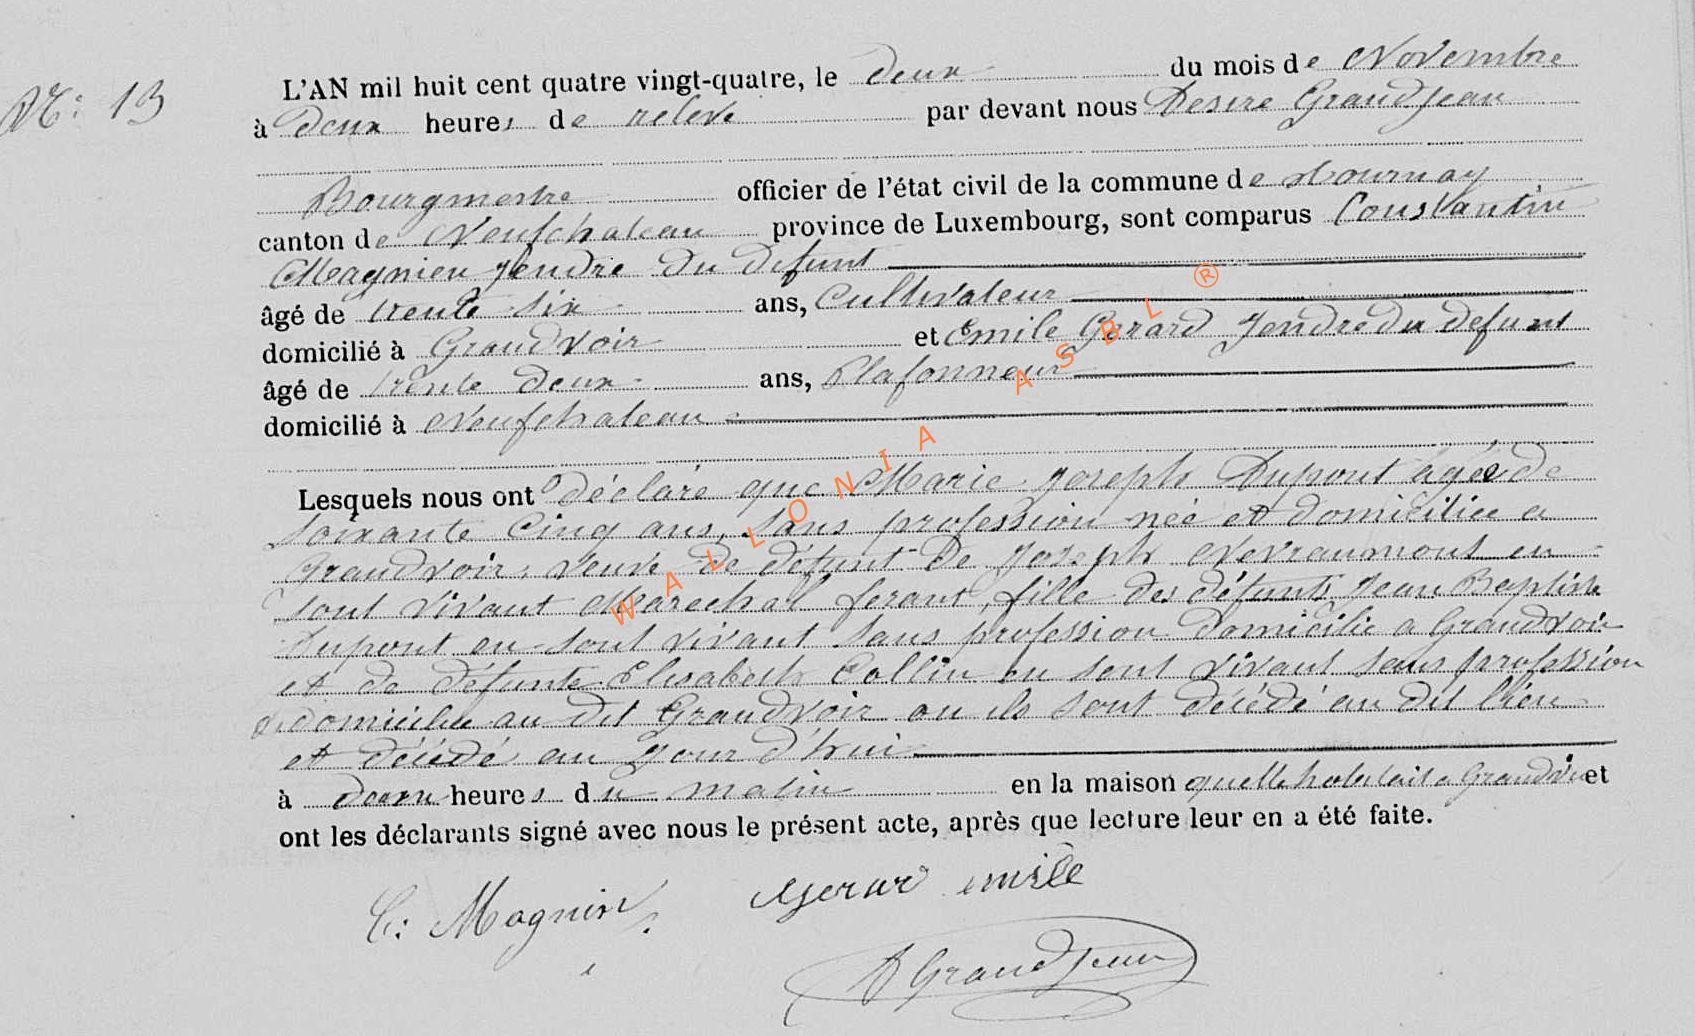 N°: 13
L'AN mil huit cent quatre vingt-quatre, le deux du mois de Novembre
à deux heures de relevé par devant nous Désiré Grandjean
Bourgmestre officier de l'état civil de la commune de Tournay
canton de Neufchateau province de Luxembourg, sont comparus Constantin
Magnien gendre du défunt
âgé de trente six ans, Cultivateur
domicilié à Grandvoir et Emile Gerard gendre du defunt
âgé de trente deux ans, Plafonneur
domicilié à Neufchateau
Lesquels nous ont déclaré que Marie Joseph Dupont agée de
soixante cinq ans, sans profession née et domiciliée a
Grandvoir, veuve de défunt de Joseph Nevraumont en
sont vivant Marechal ferant, fille des défunts Jean Baptiste
Dupont en sont vivant sans profession domicilié a Grandvoir
et de défunte Elisabeth Collin en sont vivant sans profession
domiciliée au dit Grandvoir ou ils sont décédé au dit lieu
et décédé au jour d'hui
à deux heures du matin en la maison quelle habitait a Grandvoir et
ont les déclarants signé avec nous le présent acte, après que lecture leur en a été faite.
C: Magnien Gerard emile
D Grandjean
WALLONIA ASBL ®